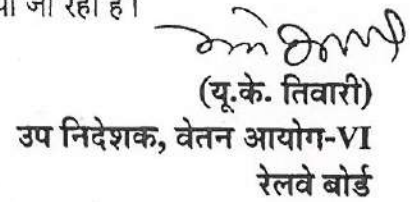 जा रहा है।
(यू.के. तिवारी)
उप निदेशक, वेतन आयोग-VI
रेलवे बोर्ड